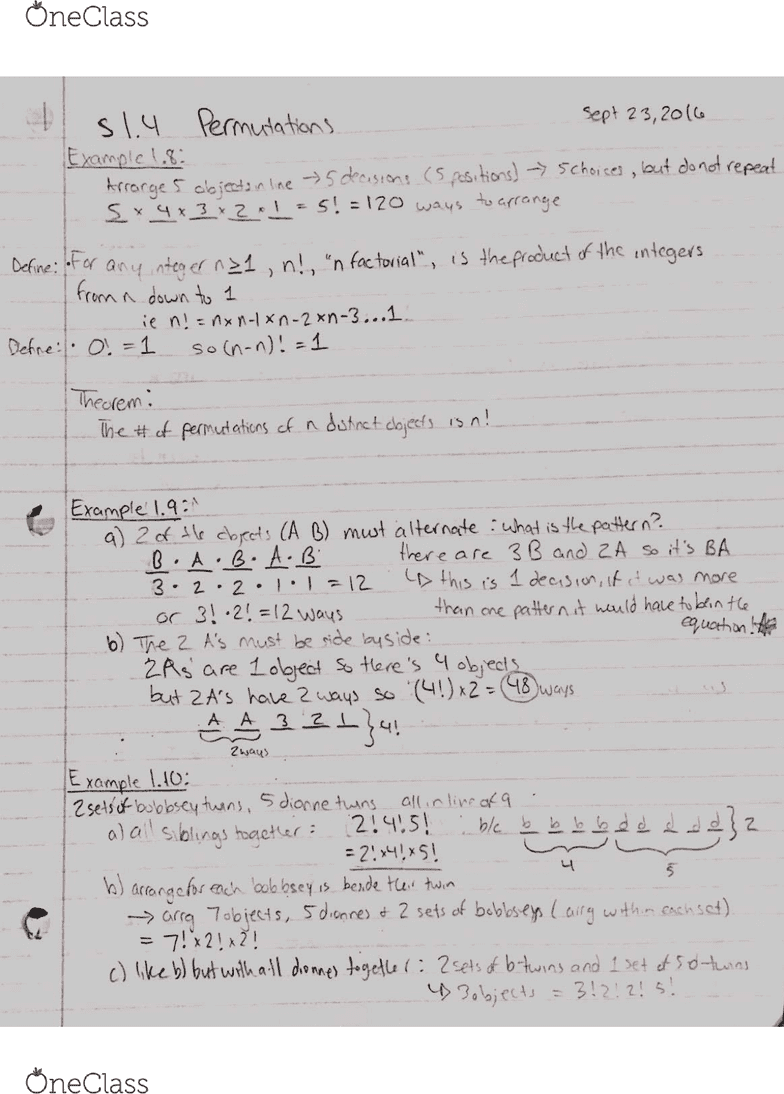 OneClass
S1.4 Permutations
Sept 23, 2016
Example 1.8:
Arrange 5 objects in line → 5 decisions (5 positions) → 5 choices, but do not repeat
5 × 4 × 3 × 2 · 1 = 5! = 120 ways to arrange
Define: • For any integer n ≥ 1, n!, "n factorial", is the product of the integers
from n down to 1
ie n! = n×n-1×n-2×n-3...1
Define: • 0! = 1 so (n-n)! = 1
Theorem:
The # of permutations of n distinct objects is n!
Example 1.9:
a) 2 of the objects (A B) must alternate: what is the pattern?
B · A · B · A · B there are 3 B and 2A so it's BA
3 · 2 · 2 · 1 · 1 = 12 ↳ this is 1 decision, if it was more
or 3! · 2! = 12 ways than one pattern it would have to be in the
equation!
b) The 2 A's must be side by side:
2As are 1 object so there's 4 objects
but 2A's have 2 ways so (4!) × 2 = 48 ways
A A 3 2 1 } 4!
2 ways
Example 1.10:
2 sets of bobbsey twins, 5 dionne twins all in line of 9
a) all siblings together: 2! 4! 5! b/c b b b b d d d d d } 2
= 2! × 4! × 5! 4 5
b) arrange for each bobbsey is beside their twin
→ arrg 7 objects, 5 dionnes + 2 sets of bobbseys (arrg within each set)
= 7! × 2! × 2!
c) like b) but with all dionnes together: 2 sets of b-twins and 1 set of 5 d-twins
↳ 3 objects = 3! 2! 2! 5!
OneClass